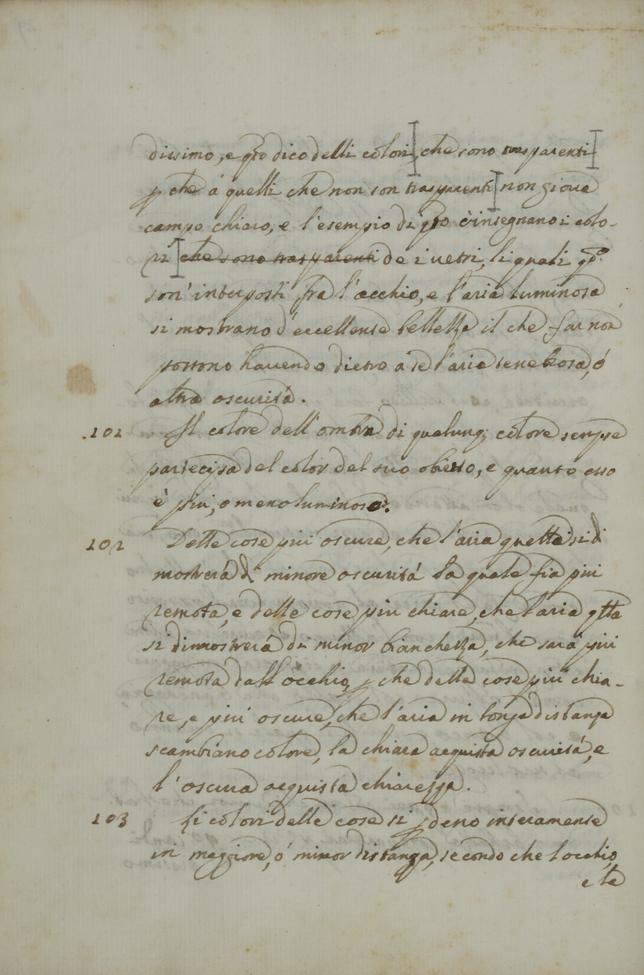 dissimo, e qto dico delli colori, che sono trasparenti
p che á quelli che non son trasparenti non giova
campo chiaro, e l'esempio di qto c'insegnano i colo-
ri che sono trasparenti de i vetri, li quali qdo
son' interposti fra l'occhio, e l'aria luminosa
si mostrano d'eccellente bellezza il che far non
possono havendo dietro a se l'aria tenebrosa, ó
altra oscuritá.
101 Il colore dell'ombra di qualunq; colore sempre
partecipa del color del suo obietto, e quanto esso
è piu, o meno luminoso.
102 Delle cose piu oscure, che l'aria quella si di
mostrerá di minore oscuritá la quale fia piu
remota, e delle cose piu chiare, che l'aria qlla
si dimostrerá di minor bianchezza, che sará piu
remota dall'occhio, p che delle cose piu chia-
re, e piu oscure, che l'aria in longa distanza
scambiano colore, la chiara acquista oscuritá, e
l'oscura acquista chiarezza.
103 Li colori delle cose si pdeno interamente
in maggiore, ó minor distanza, secondo che l'occhio
e la